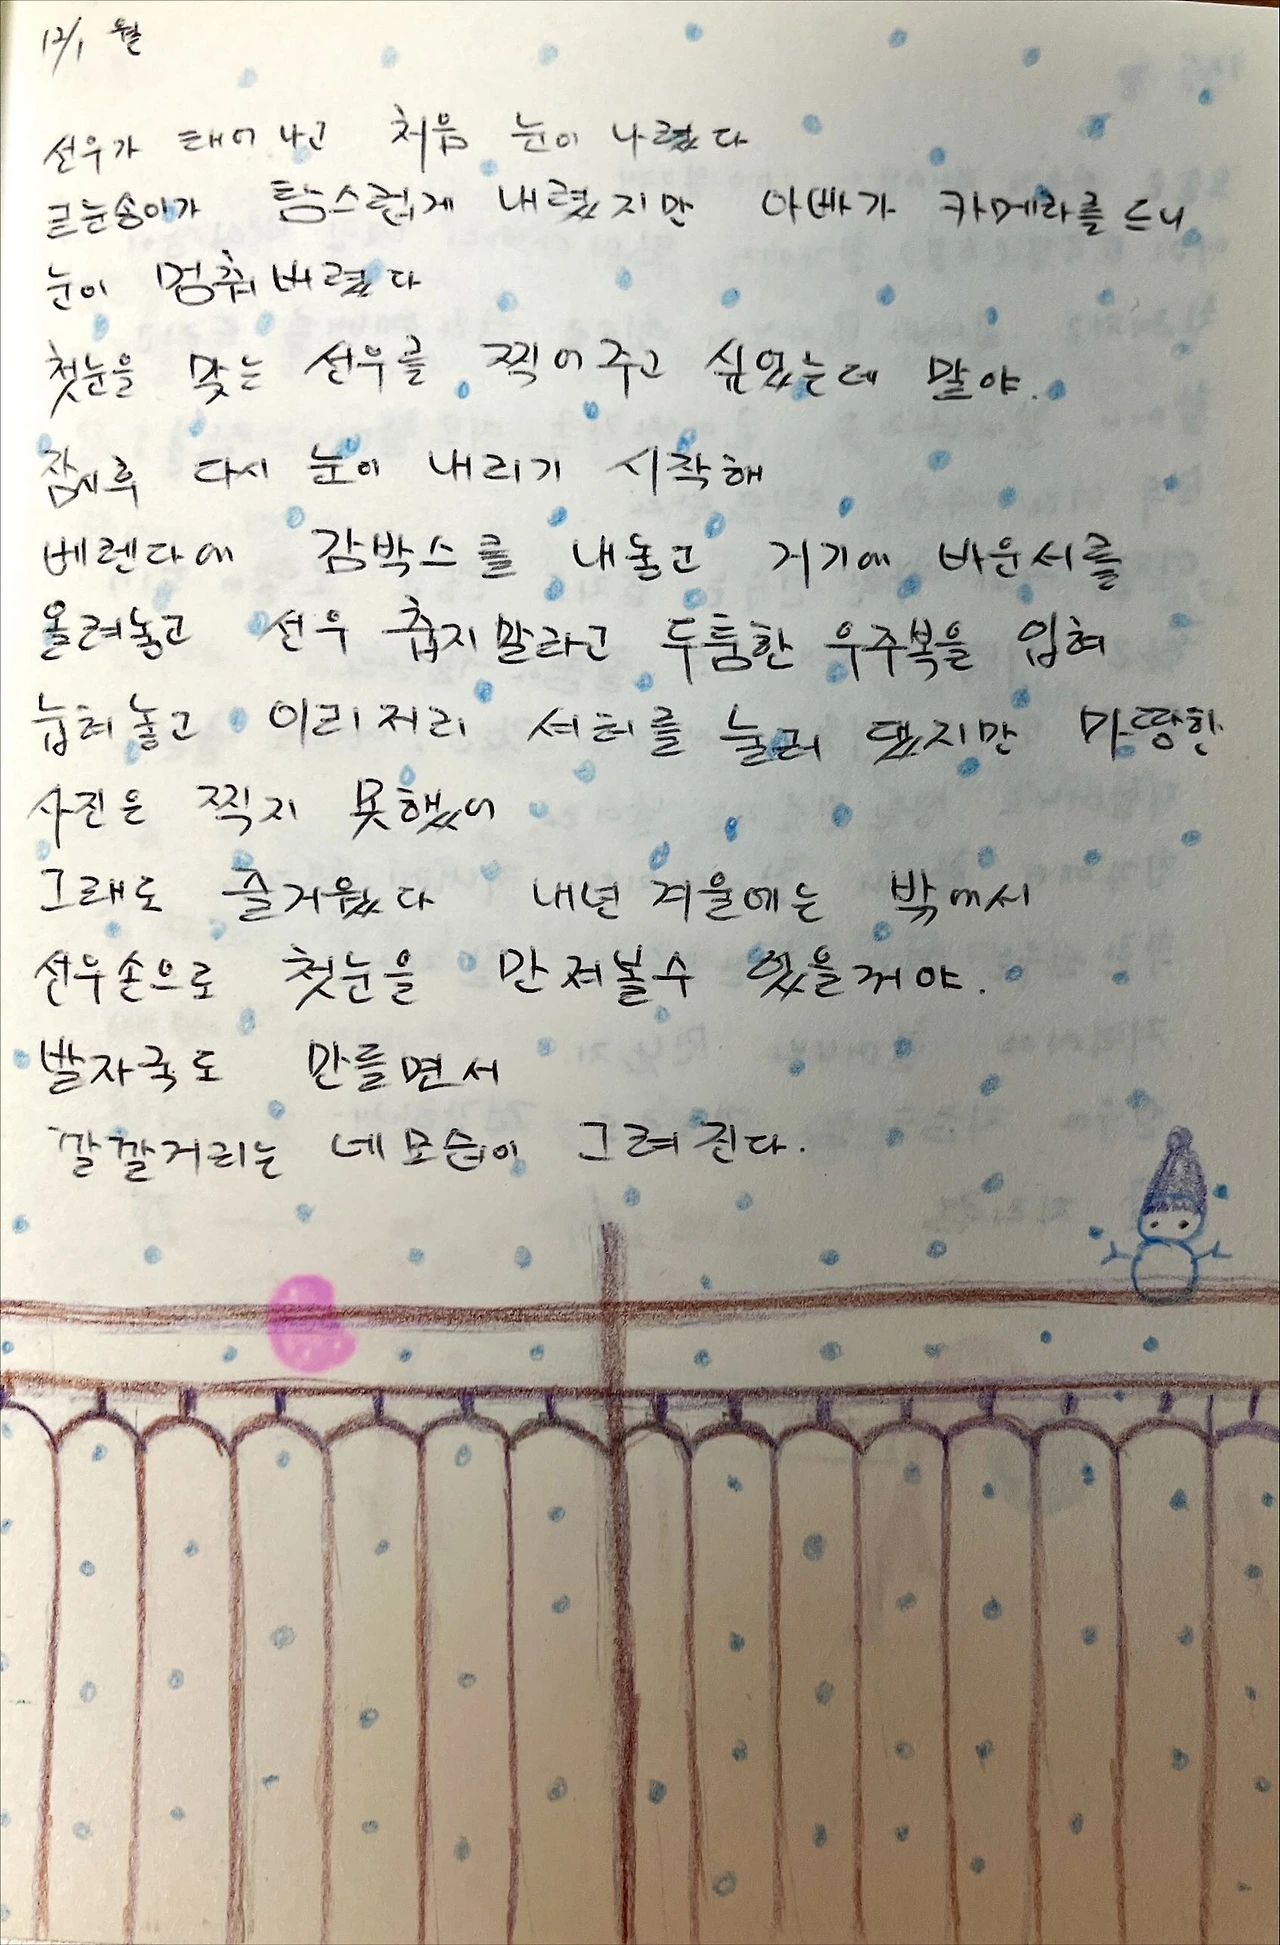 12/1 월
선우가 태어나고 처음 눈이 나렸다
큰눈송이가 탐스럽게 내렸지만 아빠가 카메라를 드니
눈이 멈춰버렸다
첫눈을 맞는 선우를 찍어주고 싶었는데 말야.
잠시후 다시 눈이 내리기 시작해
베렌다에 감박스를 내놓고 거기에 바운서를
올려놓고 선우 춥지말라고 두툼한 우주복을 입혀
눕혀놓고 이리저리 셔터를 눌러 댔지만 마땅한
사진은 찍지 못했어
그래도 즐거웠다 내년 겨울에는 밖에서
선우손으로 첫눈을 만져볼수 있을거야.
발자국도 만들면서
깔깔거리는 네모습이 그려진다.